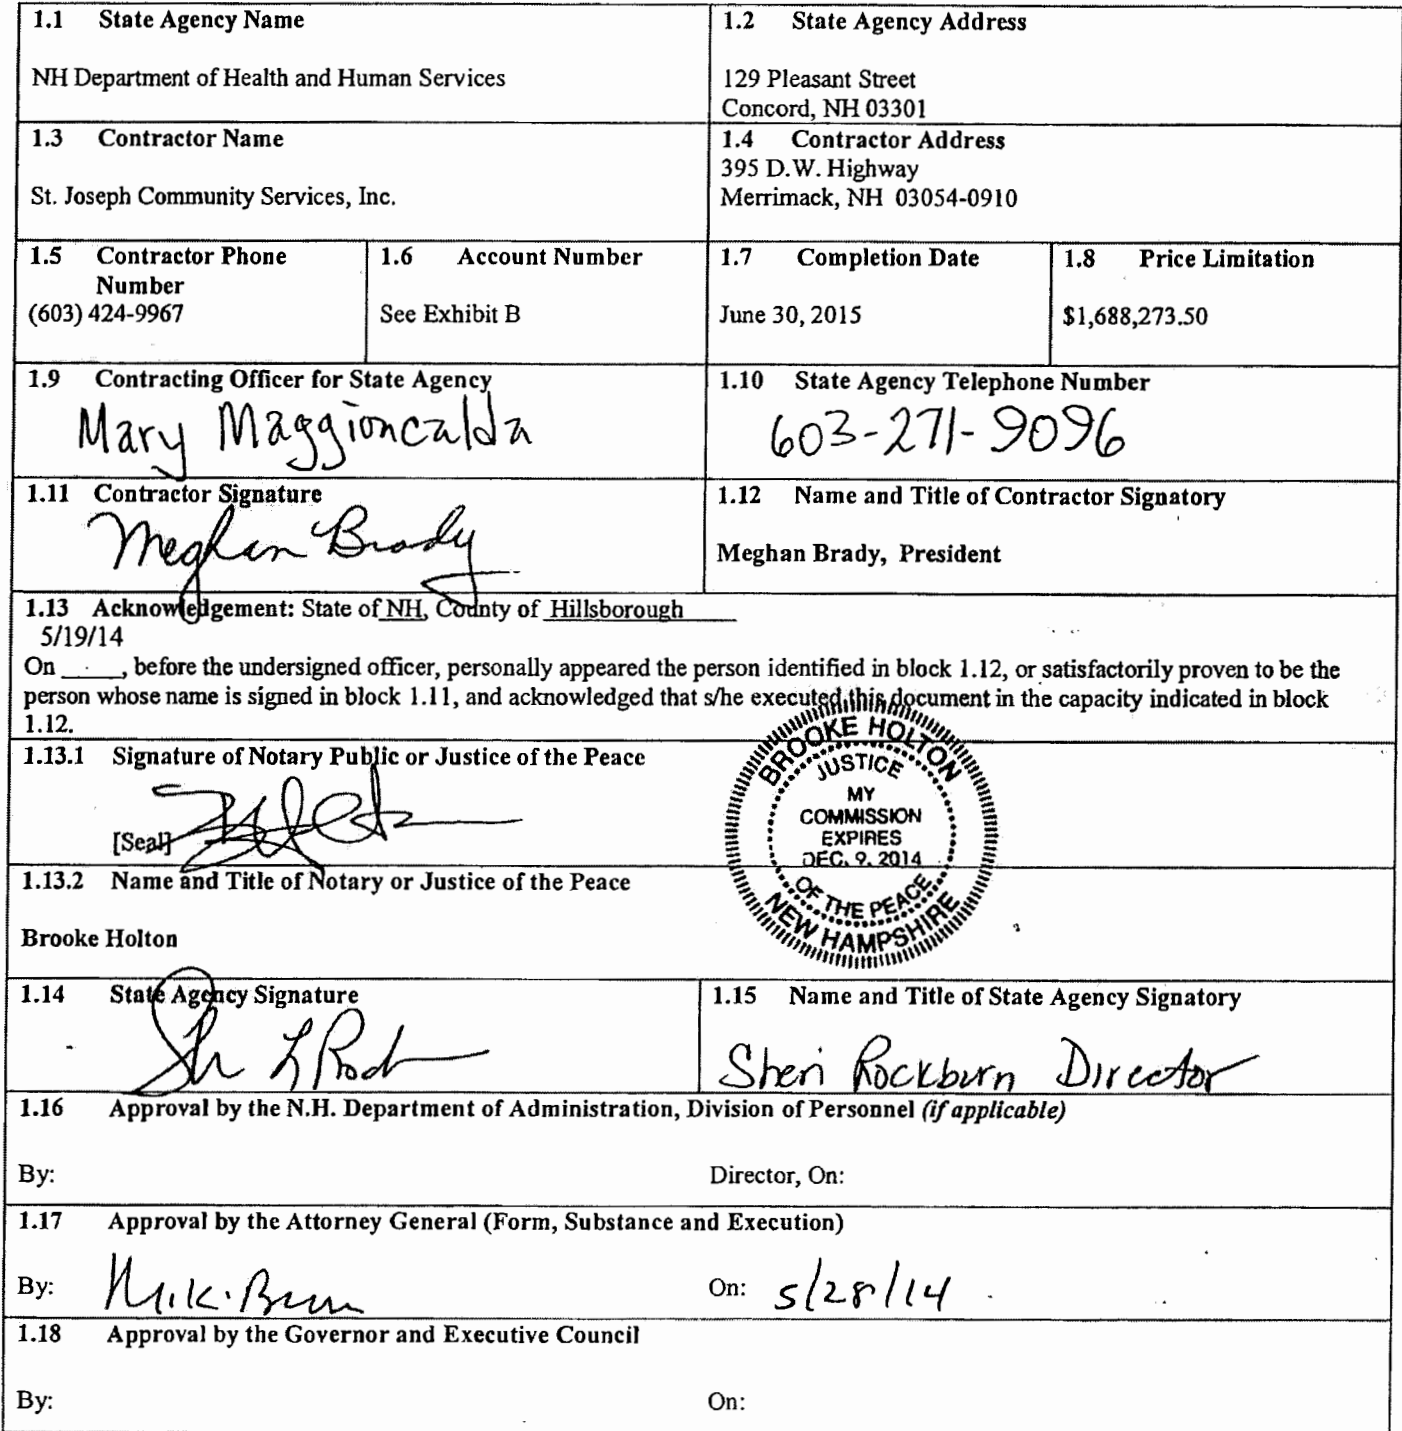 1.1 State Agency Name
NH Department of Health and Human Services
1.2 State Agency Address
129 Pleasant Street
Concord, NH 03301
1.3 Contractor Name
St. Joseph Community Services, Inc.
1.4 Contractor Address
395 D.W. Highway
Merrimack, NH 03054-0910
1.5 Contractor Phone
Number
(603) 424-9967
1.6 Account Number
See Exhibit B
1.7 Completion Date
June 30, 2015
1.8 Price Limitation
$1,688,273.50
1.9 Contracting Officer for State Agency
Mary Maggioncalda
1.10 State Agency Telephone Number
603-271-9096
1.11 Contractor Signature
Meghan Brady
1.12 Name and Title of Contractor Signatory
Meghan Brady, President
1.13 Acknowledgement: State of NH, County of Hillsborough
5/19/14
On _____, before the undersigned officer, personally appeared the person identified in block 1.12, or satisfactorily proven to be the
person whose name is signed in block 1.11, and acknowledged that s/he executed this document in the capacity indicated in block
1.12.
1.13.1 Signature of Notary Public or Justice of the Peace
[Seal]
BROOKE HOLTON
JUSTICE
MY
COMMISSION
EXPIRES
DEC. 9, 2014
OF THE PEACE
NEW HAMPSHIRE
1.13.2 Name and Title of Notary or Justice of the Peace
Brooke Holton
1.14 State Agency Signature
1.15 Name and Title of State Agency Signatory
Sheri Rockburn Director
1.16 Approval by the N.H. Department of Administration, Division of Personnel (if applicable)
By:
Director, On:
1.17 Approval by the Attorney General (Form, Substance and Execution)
By:
On: 5/28/14
1.18 Approval by the Governor and Executive Council
By:
On: